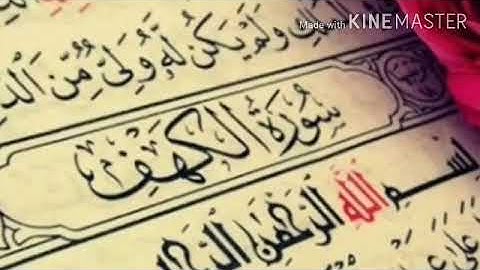 Made with KINEMASTER
وَلَمْ يَكُن لَّهُ وَلِيٌّ مِّنَ الذُّ
سُورَةُ الْكَهْفِ
بِسْمِ اللَّهِ الرَّحْمَٰنِ الرَّحِ